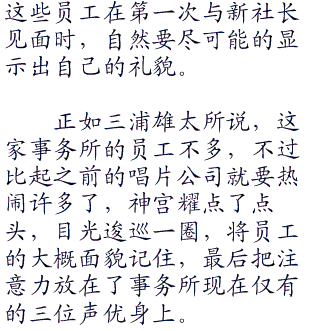 这些员工在第一次与新社长
见面时，自然要尽可能的显
示出自己的礼貌。
正如三浦雄太所说，这
家事务所的员工不多，不过
比起之前的唱片公司就要热
闹许多了，神宫耀点了点
头，目光逡巡一圈，将员工
的大概面貌记住，最后把注
意力放在了事务所现在仅有
的三位声优身上。